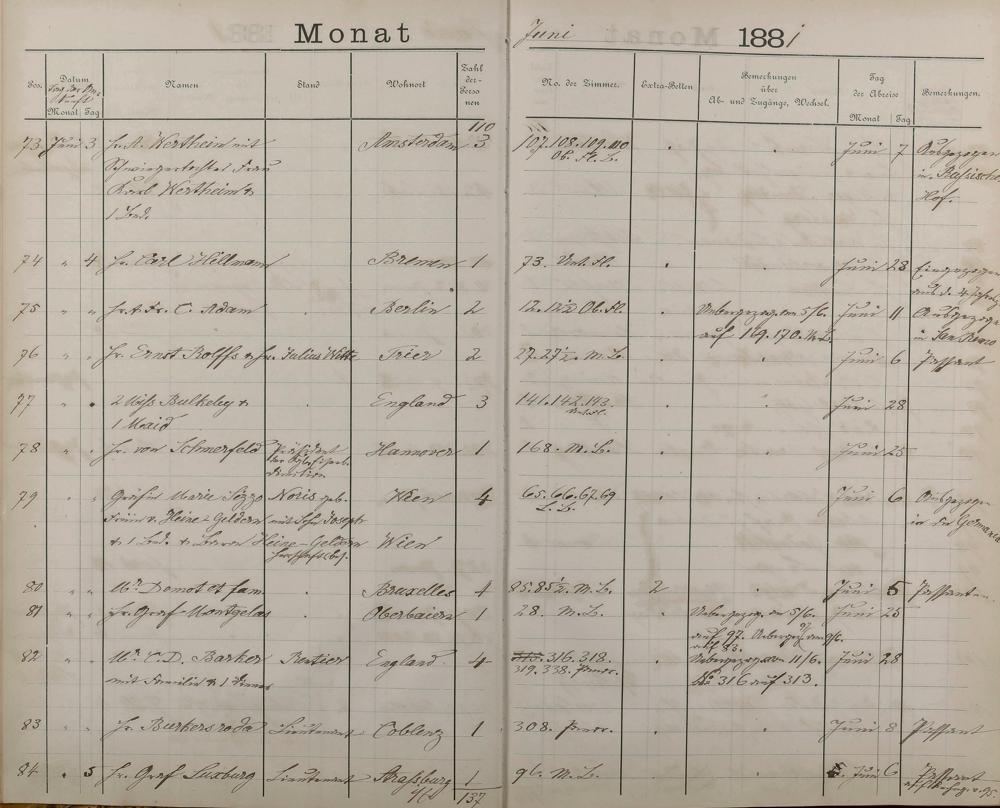 Monat Juni 1881
Pos. Datum Namen Stand Wohnort Zahl der Personen No. der Zimmer. Extra-Betten Bemerkungen über Ab- und Zugänge, Wechsel. Tag der Abreise Bemerkungen.
Monat Tag Monat Tag
110
73 Juni 3 Hr. A. Wertheim mit Amsterdam 3 107.108.109.110 Juni 7 Ausgezogen
Schwiegertochter Frau Ob. Fl. L. in Russischen
Karl Wertheim & Hof.
1 Bed.
74 " 4 Hr. Carl Hellmann Bremen 1 73. Unt. Fl. Juni 23 Eingezogen
75 " " Hr. & Fr. C. Adam Berlin 2 12.12½ Ob. Fl. Uebergezog. am 5/6. Juni 11 Ausgezogen
auf 169.170. M.L. in
76 " " Hr. Ernst Rolffs & Hr. Julius Witte Trier 2 27.27½. M.L. Juni 6 Passant
77 " " 2 Miss Bulkeley & England 3 141.142.143. Juni 28
1 Maid Unt. Fl.
78 " " Hr. von Schmerfeld Präsident Hannover 1 168. M.L. Juni 25
der
Direction
79 " " Gräfin Marie Sizzo Noris geb. Wien 4 65.66.67.69 Juni 6 Ausgezogen
Freiin v. Heine-Geldern mit Sohn Joseph L.L. in die Germania
& 1 Bed. & Baron Heine-Geldern Wien
80 " " Mr. Demot et fam. Bruxelles 4 85.85½. M.L. 2 Juni 5 Passanten
81 " " Hr. Graf Montgelas Oberbaiern 1 28. M.L. Uebergezog. am 5/6. Juni 25
auf 97. Uebergez. am 9/6.
auf 83.
82 " " Mr. C.D. Barker Rentier England 4 315.316.318. Uebergezogen am 11/6. Juni 28
mit Familie & 1 Diener 319.338. No 316 auf 313.
83 " " Hr. Burkersroda Lieutenant Coblenz 1 308. Juni 8 Passant
84 " 5 Hr. Graf Luxburg Lieutenant Strassburg 1 96. M.L. Juni 6 Passant
137